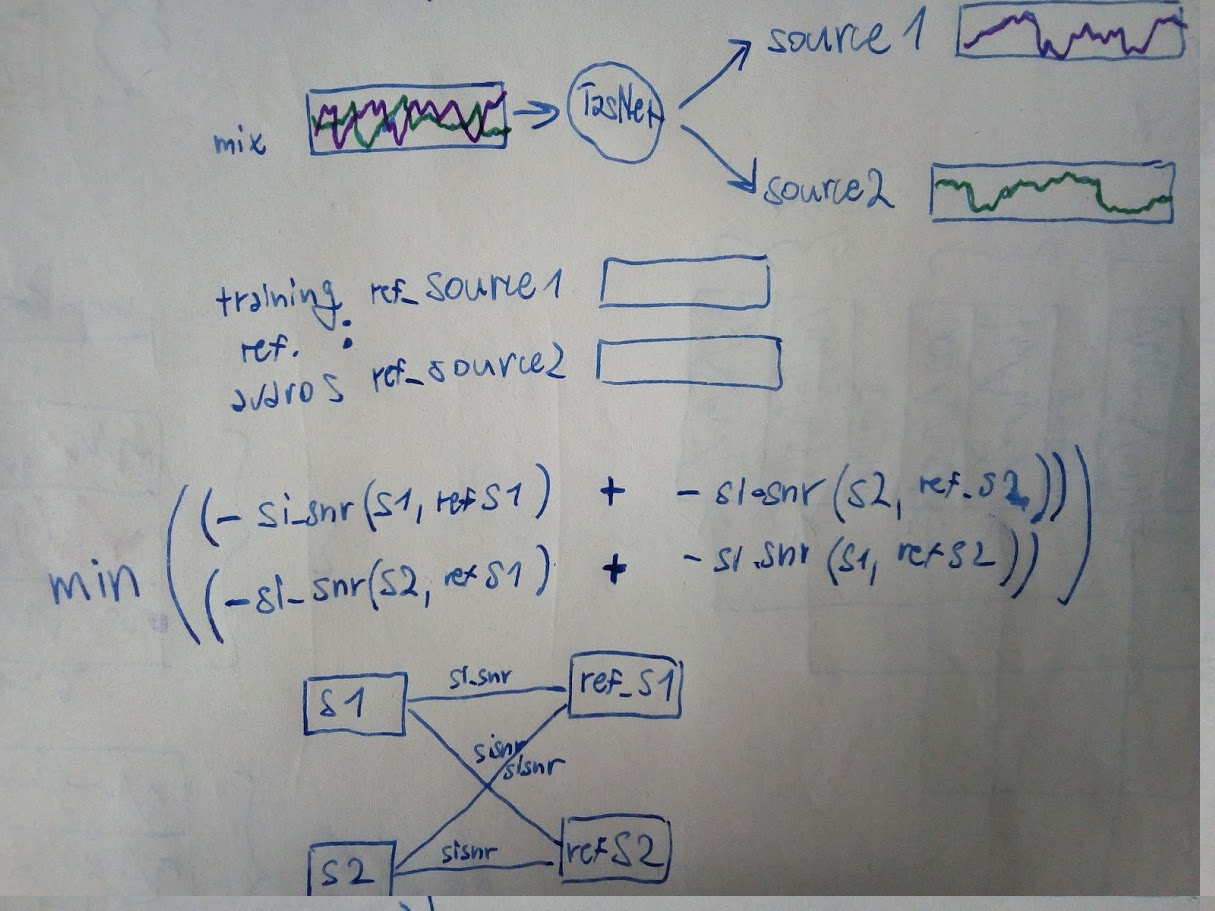 source 1
mix
TasNet
source2
training ref_source1
ref. :
audios ref_source2
min
((-si_snr(s1, ref s1) + -si-snr(s2, ref_s2)))
((-si_snr(s2, ref s1) + -si.snr(s1, ref s2)))
s1 si_snr ref_s1
sisnr
sisnr
s2 sisnr ref s2